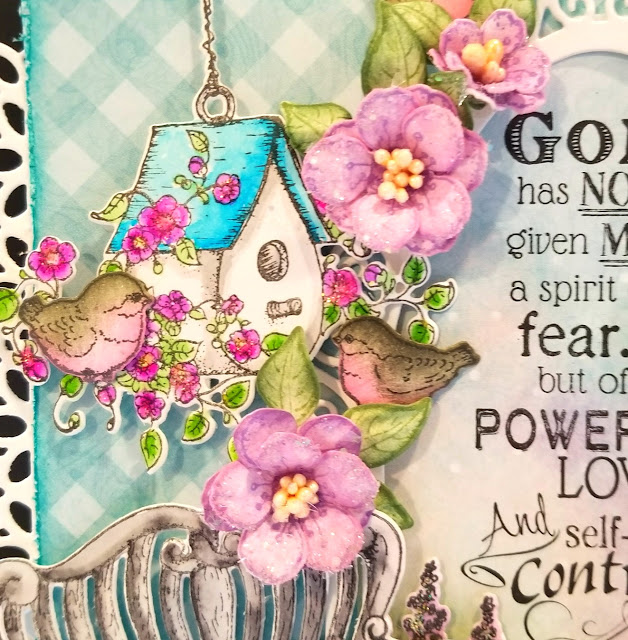 GO
has NO
given M
a spirit
fear.
but of
POWER
LOV
And self-
Contr